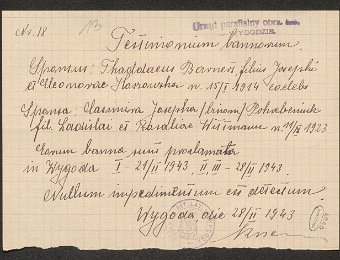 Nr. 18
13
Urząd parafialny obrz. łac.
WYGODZIE
Testimonium bannorum.
Sponsus: Thaddaeus Barnert filius Josephi
et Eleonorae Karowska n. 15/I 1914 coelebs
Sponsa: Casimira Josepha (binom) Pohrebeniuk
fil. Ladislai et Rosaliae Wismann n. 19/II 1923
Eorum banna sunt proclamata
in Wygoda I - 21/II 1943, II, III - 28/II 1943.
Nullum impedimentum est detectum.
Wygoda die 28/II 1943